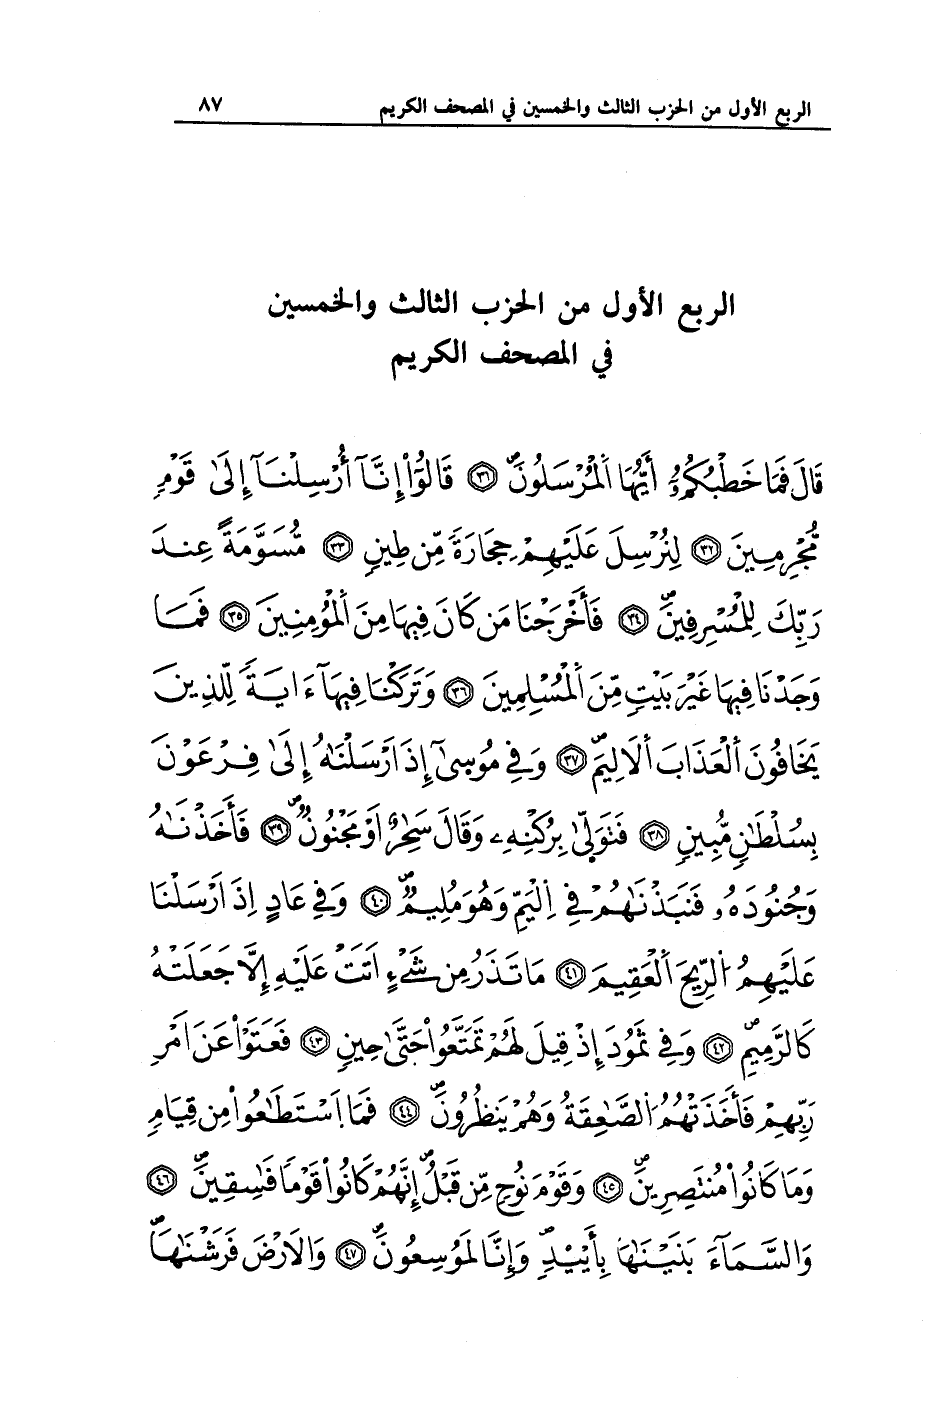 الربع الأول من الحزب الثالث والخمسين في المصحف الكريم ٨٧
الربع الأول من الحزب الثالث والخمسين
في المصحف الكريم
قَالَ فَمَا خَطْبُكُمُۥٓ أَيُّهَا اَ۬لْمُرْسَلُونَۖ ٣١ قَالُوٓاْ إِنَّآ أُرْسِلْنَآ إِلَىٰ قَوْمٖ
مُّجْرِمِينَ ٣٢ لِنُرْسِلَ عَلَيْهِمْ حِجَارَةٗ مِّن طِينٖ ٣٣ مُّسَوَّمَةً عِندَ
رَبِّكَ لِلْمُسْرِفِينَۖ ٣٤ فَأَخْرَجْنَا مَن كَانَ فِيهَا مِنَ اَ۬لْمُؤْمِنِينَ ٣٥ فَمَا
وَجَدْنَا فِيهَا غَيْرَ بَيْتٖ مِّنَ اَ۬لْمُسْلِمِينَ ٣٦ وَتَرَكْنَا فِيهَآ ءَايَةٗ لِّلذِينَ
يَخَافُونَ اَ۬لْعَذَابَ اَ۬لَالِيمَۖ ٣٧ وَفِي مُوسِىٰٓ إِذَ اَرْسَلْنَٰهُ إِلَىٰ فِرْعَوْنَ
بِسُلْطَٰنٖ مُّبِينٖ ٣٨ فَتَوَلَّىٰ بِرُكْنِهِۦ وَقَالَ سَٰحِرٌ اَوْ مَجْنُونٞۖ ٣٩ فَأَخَذْنَٰهُ
وَجُنُودَهُۥ فَنَبَذْنَٰهُمْ فِي اِ۬لْيَمِّ وَهُوَ مُلِيمٞۖ ٤٠ وَفِي عَادٍ اِذَ اَرْسَلْنَا
عَلَيْهِمُ اُ۬لرِّيحَ اَ۬لْعَقِيمَ ٤١ مَا تَذَرُ مِن شَےْءٍ اَتَتْ عَلَيْهِ إِلَّا جَعَلَتْهُ
كَالرَّمِيمِۖ ٤٢ وَفِي ثَمُودَ إِذْ قِيلَ لَهُمْ تَمَتَّعُواْ حَتَّىٰ حِينٖ ٤٣ فَعَتَوْاْ عَنَ اَمْرِ
رَبِّهِمْ فَأَخَذَتْهُمُ اُ۬لصَّٰعِقَةُ وَهُمْ يَنظُرُونَۖ ٤٤ فَمَا اَ۪سْتَطَٰعُواْ مِن قِيَامٖ
وَمَا كَانُواْ مُنتَصِرِينَۖ ٤٥ وَقَوْمَ نُوحٖ مِّن قَبْلُۖ إِنَّهُمْ كَانُواْ قَوْماٗ فَٰسِقِينَۖ ٤٦
وَالسَّمَآءَ بَنَيْنَٰهَا بِأَيْيْدٖۖ وَإِنَّا لَمُوسِعُونَۖ ٤٧ وَالَارْضَ فَرَشْنَٰهَاۖ